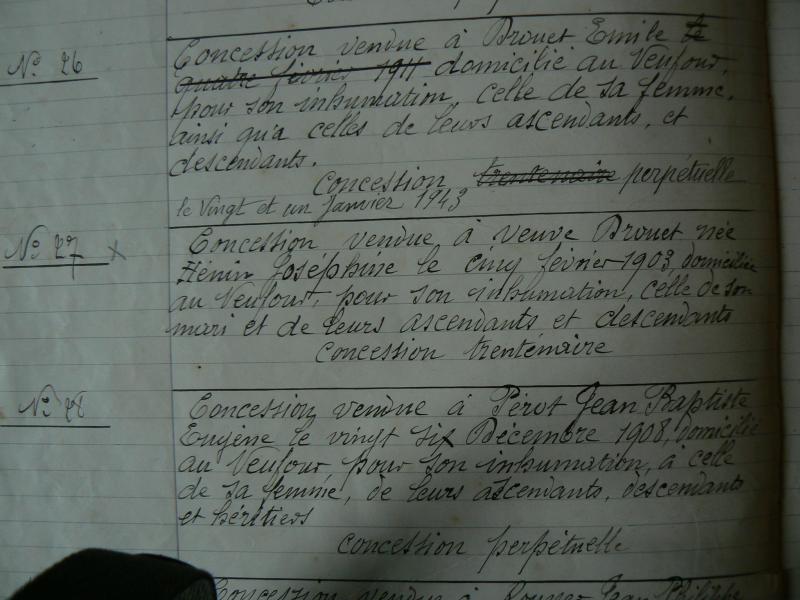 No 26
Concession vendue à Brouet Emile le
quatre février 1911 domicilié au Neufour,
pour son inhumation, celle de sa femme,
ainsi qu'a celles de leurs ascendants, et
descendants.
Concession trentenaire perpétuelle
le Vingt et un Janvier 1943
No 27 x
Concession vendue à veuve Brouet née
Hénin Joséphine le cinq février 1903, domiciliée
au Neufour, pour son inhumation, celle de son
mari et de leurs ascendants et descendants
concession trentenaire
No 28
Concession vendue à Pérot Jean Baptiste
Eugène le vingt six Décembre 1908, domicilié
au Neufour pour son inhumation, à celle
de sa femme, de leurs ascendants, descendants
et héritiers
concession perpétuelle
Concession vendue à Jean Philippe